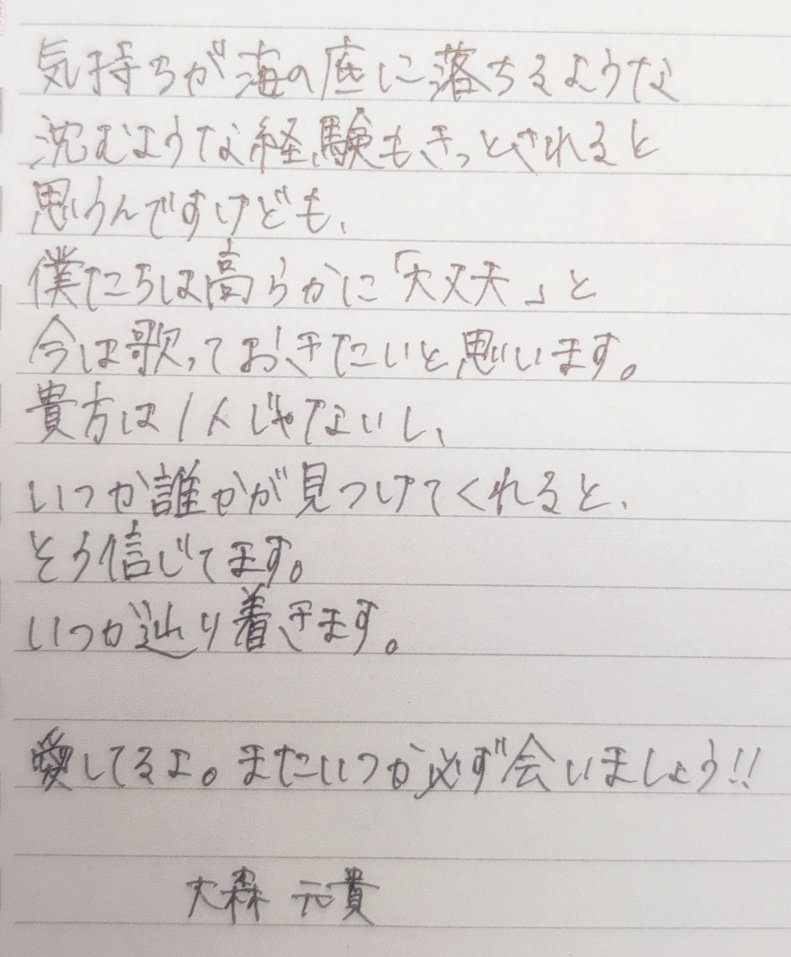 気持ちが海の底に落ちるような
沈むような経験もきっとされると
思うんですけども、
僕たちは高らかに「大丈夫」と
今は歌っておきたいと思います。
貴方は1人じゃないし、
いつか誰かが見つけてくれると、
そう信じてます。
いつか辿り着きます。
愛してるよ。またいつか必ず会いましょう!!
大森 元貴